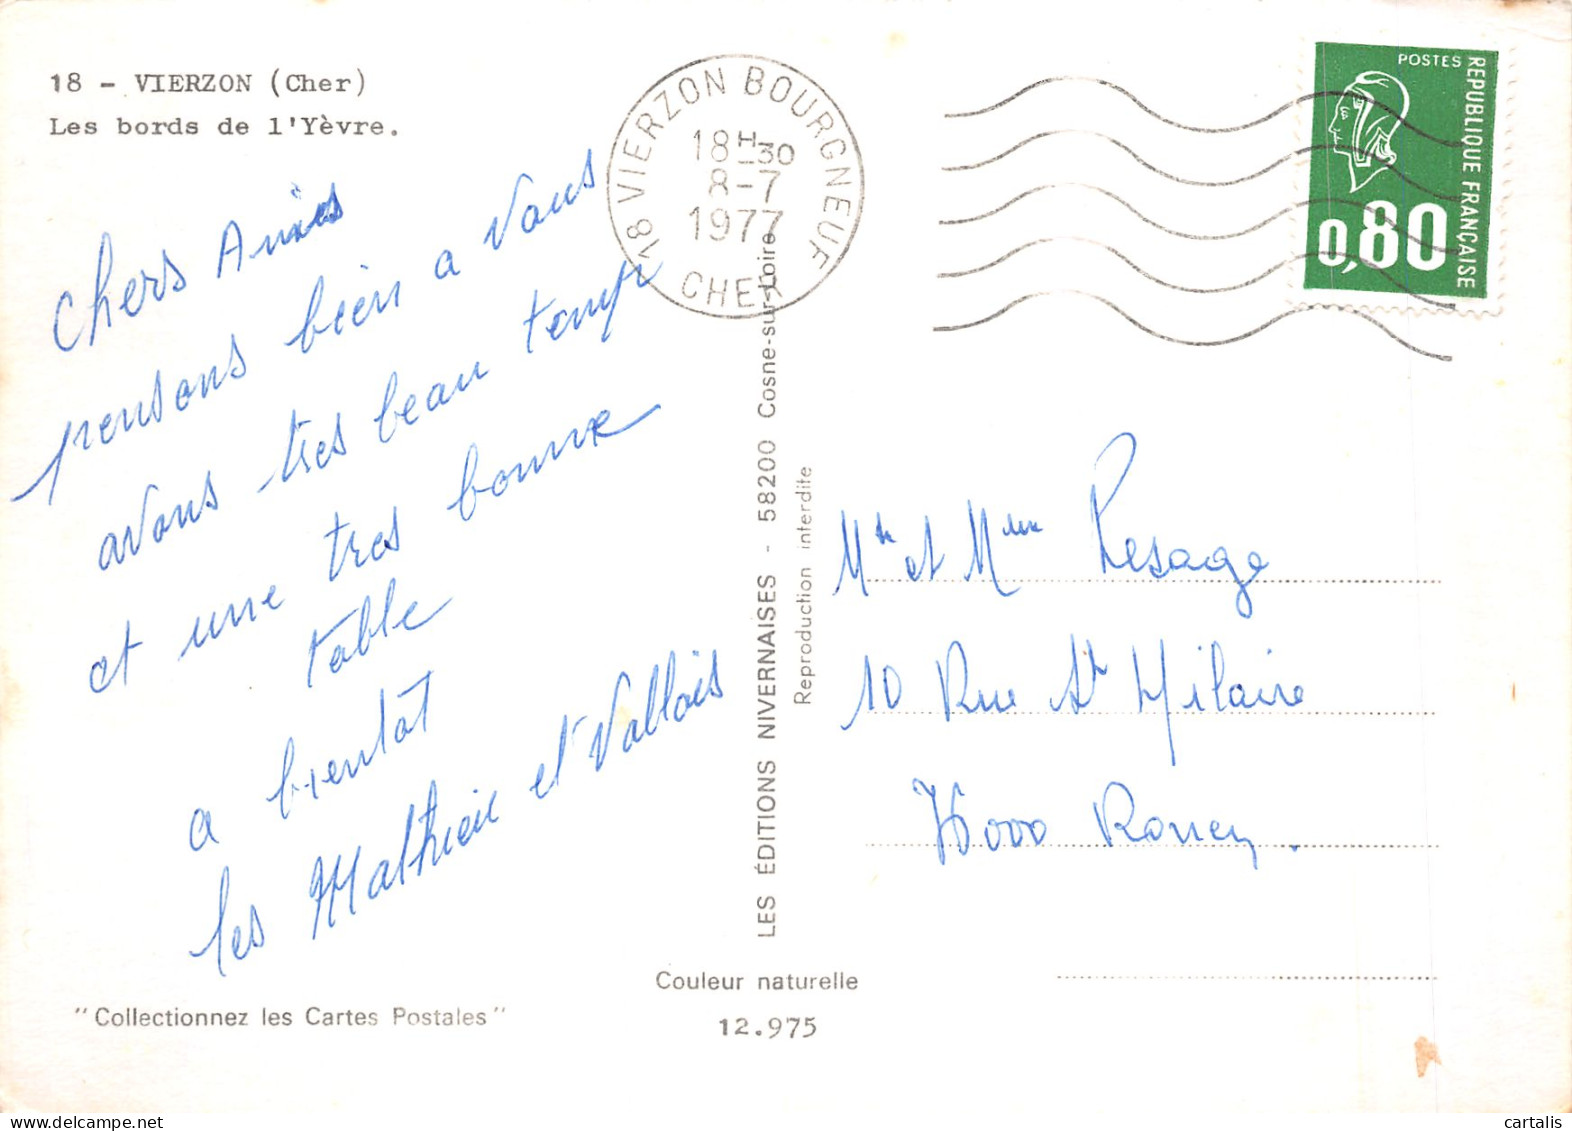 18 - VIERZON (Cher)
Les bords de l'Yèvre.
Chers Amis
pensons bien a Vous
avons tres beau temps
et une tres bonne
table
a bientôt
les Mathieu et Vallois
"Collectionnez les Cartes Postales"
18 VIERZON BOURGNEUF
18H30
8-7
1977
CHER
LES ÉDITIONS NIVERNAISES - 58200 Cosne-sur-Loire
Reproduction interdite
Couleur naturelle
12.975
POSTES
REPUBLIQUE FRANÇAISE
0,80
Mr et Mme Lesage
10 Rue St Hilaire
76000 Rouen.
cartalis